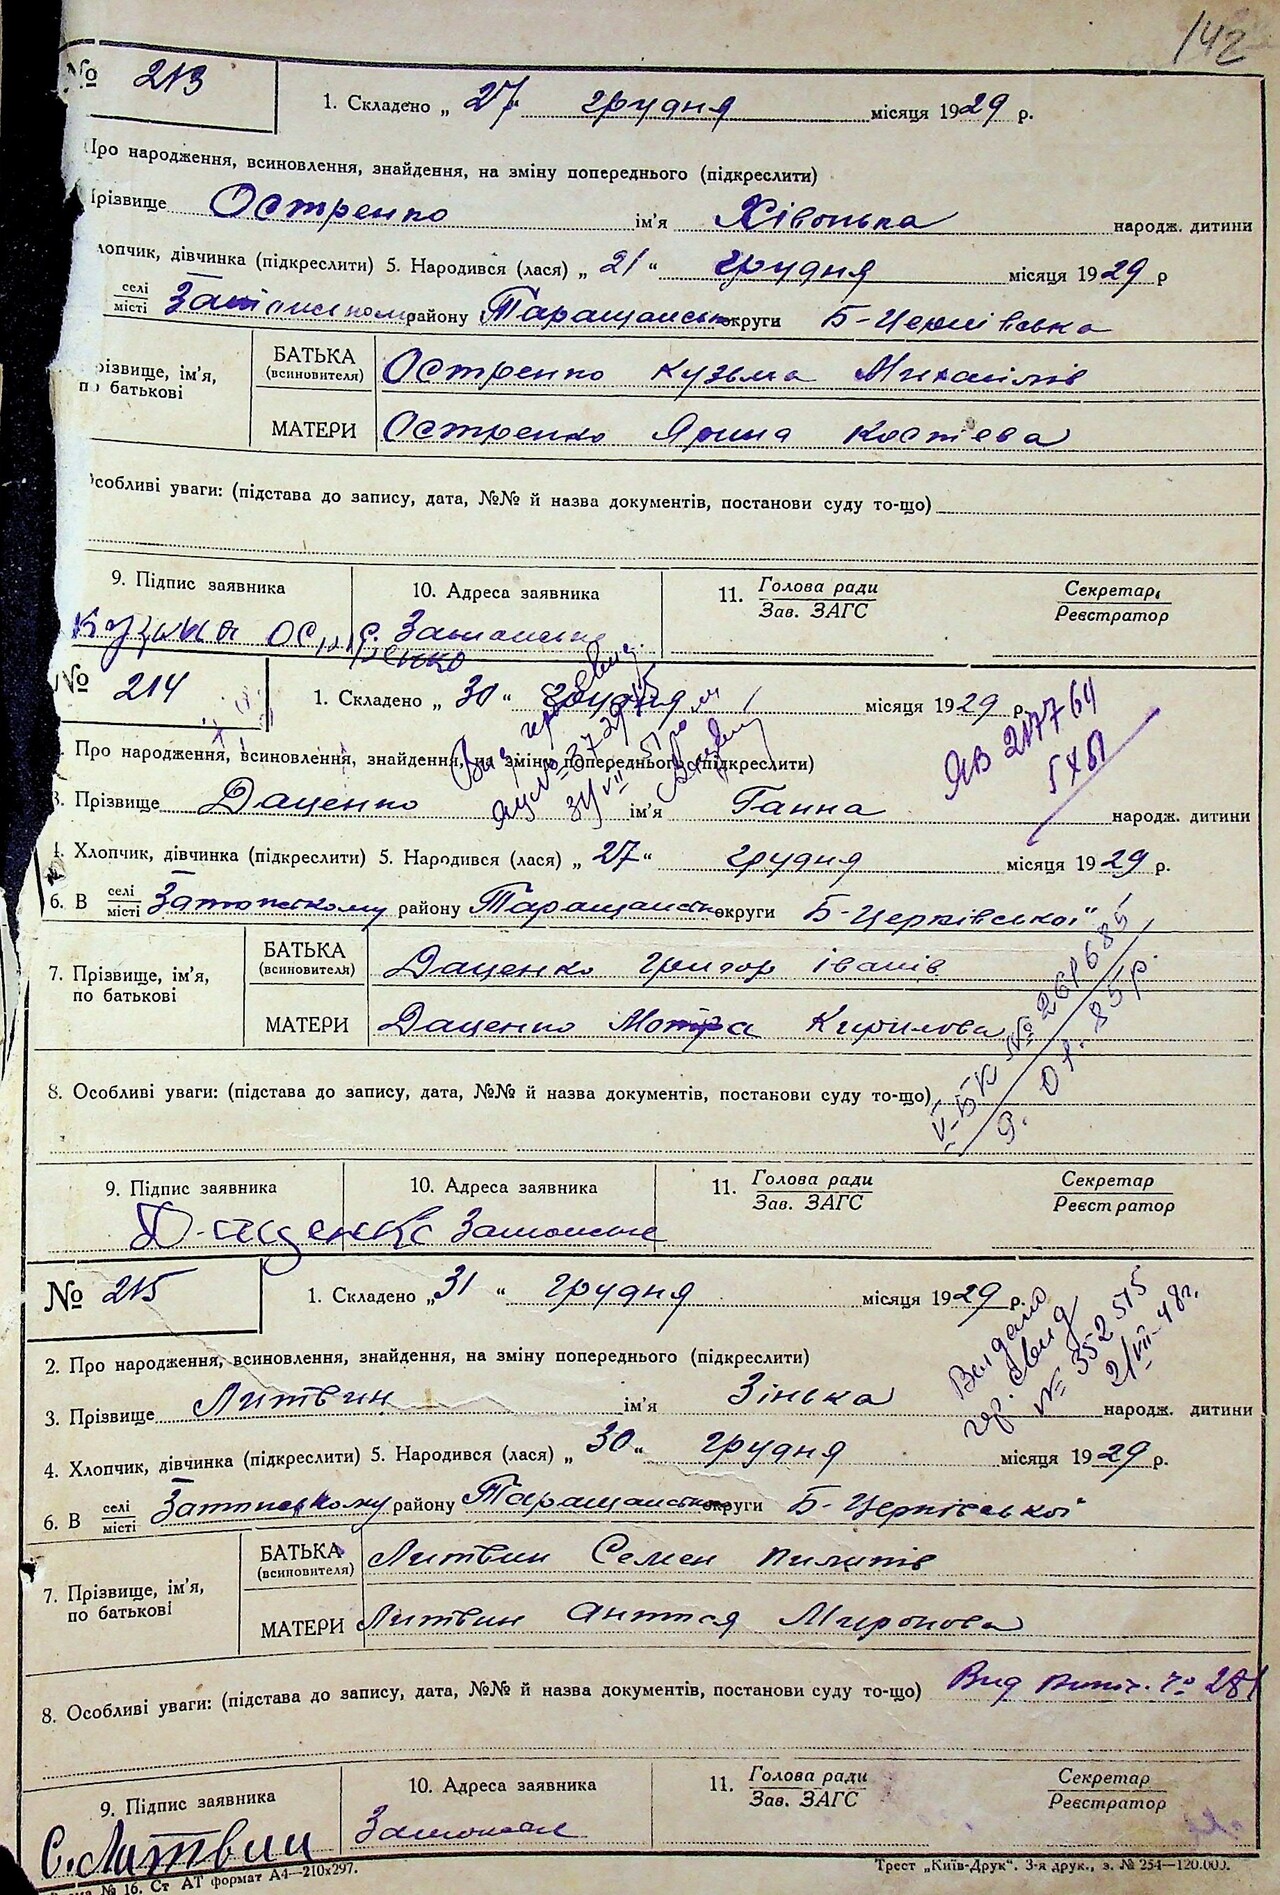 142
№ 213
1. Складено „ 27 “ грудня місяця 1929 р.
Про народження, всиновлення, знайдення, на зміну попереднього (підкреслити)
Прізвище Остренко ім'я Хівонька народж. дитини
лопчик, дівчинка (підкреслити) 5. Народився (лася) „ 21 “ грудня місяця 1929 р
селі
місті району Таращанськ округи Б-Церківська
різвище, ім'я, по батькові
БАТЬКА (всиновителя) Остренко Кузьма Михайлів
МАТЕРИ Остренко Ярина Костева
собливі уваги: (підстава до запису, дата, №№ й назва документів, постанови суду то-що)
9. Підпис заявника 10. Адреса заявника 11. Голова ради
Зав. ЗАГС Секретар
Реєстратор
Кузьма Остренко с.
№ 214
1. Складено „ 30 “ грудня місяця 1929 р.
Про народження, всиновлення, знайдення, на зміну попереднього (підкреслити)
ЯВ 217764
3. Прізвище Даценко ім'я Ганна народж. дитини
4. Хлопчик, дівчинка (підкреслити) 5. Народився (лася) „ 27 “ грудня місяця 1929 р.
6. В селі
місті Затонському району Таращанськ округи Б-Церківської
7. Прізвище, ім'я, по батькові
БАТЬКА (всиновителя) Даценко Григор Іванів
МАТЕРИ Даценко Мотря Кирилова
V-БК № 261685
9. 01. 85р.
8. Особливі уваги: (підстава до запису, дата, №№ й назва документів, постанови суду то-що)
9. Підпис заявника 10. Адреса заявника 11. Голова ради
Зав. ЗАГС Секретар
Реєстратор
Даценко
№ 215
1. Складено „ 31 “ грудня місяця 1929 р.
2. Про народження, всиновлення, знайдення, на зміну попереднього (підкреслити)
Видано
гр. свид
№ 352515
21/VIII-48г.
3. Прізвище Литвин ім'я Зінька народж. дитини
4. Хлопчик, дівчинка (підкреслити) 5. Народився (лася) „ 30 “ грудня місяця 1929 р.
6. В селі
місті Затонському району Таращанськ округи Б-Церківської
7. Прізвище, ім'я, по батькові
БАТЬКА (всиновителя) Литвин Семен Пилипів
МАТЕРИ Литвин Миронова
8. Особливі уваги: (підстава до запису, дата, №№ й назва документів, постанови суду то-що) Вид 281
9. Підпис заявника 10. Адреса заявника 11. Голова ради
Зав. ЗАГС Секретар
Реєстратор
С. Литвин
№ 16. Ст АТ формат А4—210х297. Трест „Київ-Друк“. 3-я друк., з. № 254—120.000.